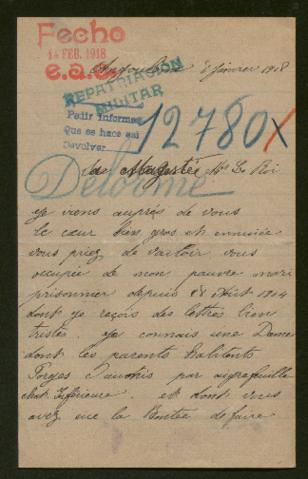 Fecho
14 FEB. 1918
e.a.c.
Angoulême 8 février 1918
REPATRIACIÓN
MILITAR
Pedir informes
Que se hace así
Devolver
12780 X
Sa Majesté Mr Le Roi
Delorme
je viens auprès de vous
le cœur bien gros et ennuiée
vous priez de vouloir vous
occupée de mon pauvre mari
prisonnier depuis 28 Août 1914
dont je reçois des lettres bien
tristes. je connais une Dame
dont les parents habitents
Forges d'aunis par aigrefeuille
chte Inférieure. et dont vous
avez eue la Bontée de faire